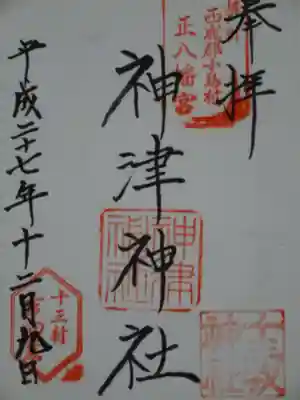 奉拝
西成郡小島村
正八幡宮
神津神社
神津神社
十三村
平成二十七年十二月九日